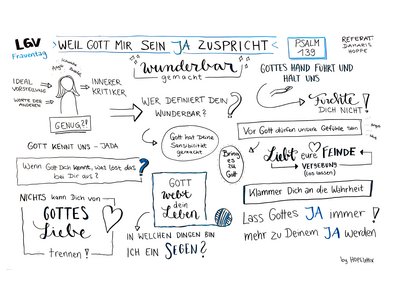 LGV
Frauentag
WEIL GOTT MIR SEIN JA ZUSPRICHT
PSALM
139
REFERAT:
DAMARIS
HOPPE
wunderbar
gemacht
GOTTES HAND FÜHRT UND
HÄLT UNS
IDEAL
VORSTELLUNG
WORTE DER
ANDEREN
INNERER
KRITIKER
GENUG?!
WER DEFINIERT DEIN
WUNDERBAR?
Fürchte
DICH NICHT!
Gott hat Deine
Sensibilität
gemacht
Vor Gott dürfen unsere Gefühle sein
GOTT KENNT UNS - JADA
Wenn Gott Dich kennt, was löst das
bei Dir aus?
Bring
es zu
Gott
Liebt eure FEINDE
VERGEBUNG
(los lassen)
NICHTS kann Dich von
GOTTES
Liebe
trennen!
GOTT
webt
dein
Leben
Klammer Dich an die Wahrheit
IN WELCHEN DINGEN BIN
ICH EIN SEGEN?
Lass Gottes JA immer
mehr zu Deinem JA werden!